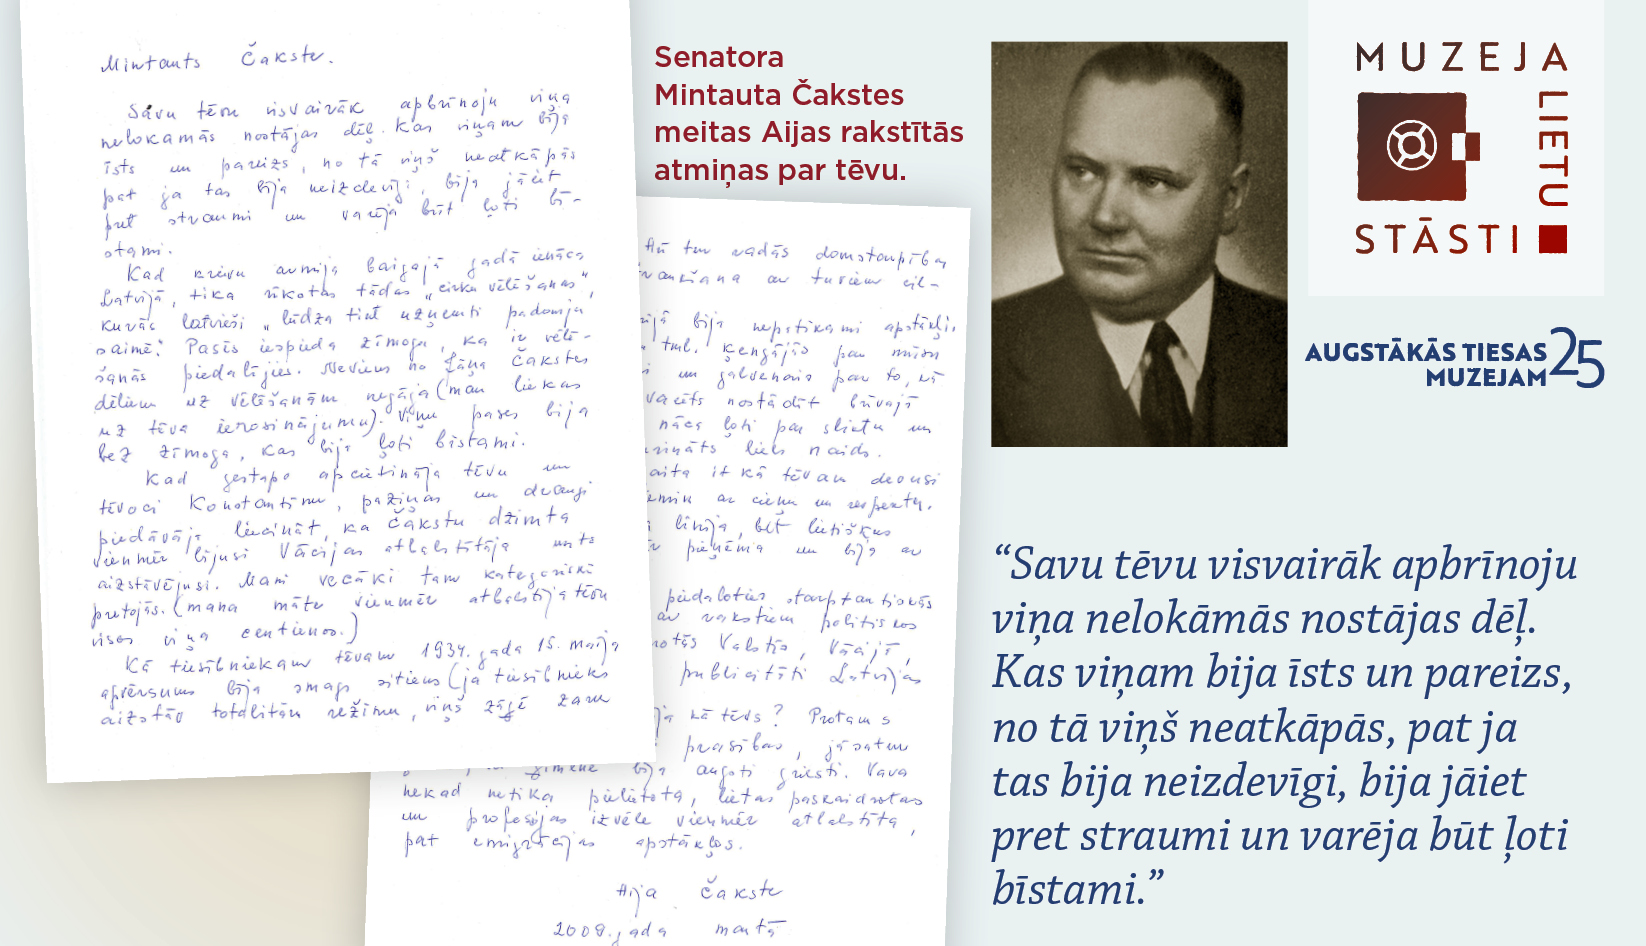 Mintauts Čakste.
Savu tēvu visvairāk apbrīnoju viņa
nelokamās nostājas dēļ. Kas viņam bija
īsts un pareizs, no tā viņš neatkāpās
pat ja tas bija neizdevīgi, bija jāiet
pret straumi un varēja būt ļoti bī-
stami.
Kad krievu armija baigajā gadā ienāca
Latvijā, tika rīkotas tādas „cirka vēlēšanas",
kurās latvieši „lūdza tikt uzņemti padomju
saimē". Pasēs iespieda zīmogu, ka ir vēlē-
šanās piedalījies. Neviens no Jāņa Čakstes
dēliem uz vēlēšanām negāja (man liekas
uz tēva ierosinājumu). Viņu pases bija
bez zīmoga, kas bija ļoti bīstami.
Kad gestapo apcietināja tēvu un
tēvoci Konstantīnu, paziņas un draugi
piedāvāja liecināt, ka Čakstu dzimta
vienmēr bijusi Vācijas atbalstītāja un to
aizstāvējusi. Mani vecāki tam kategoriski
pretojās. (mana māte vienmēr atbalstīja tēvu
visos viņa centienos.)
Kā tiesībniekam tēvam 1934. gada 15. maija
apvērsums bija smags sitiens (ja tiesībnieks
aizstāv totalitāru režīmu, viņš zāģē zaru
Senatora
Mintauta Čakstes
meitas Aijas rakstītās
atmiņas par tēvu.
Arī tur radās domstarpības
ar turiem cil-
bija nepatīkami apstākļi.
tml. Ķengājās par mūsu
un galvenais par to, kā
nostādīt brīvajā
nāca ļoti par sliktu un
liels naids.
it kā tēvam draugi
ar cieņu un respektu.
līnija, bet lietišķus
pieņēma un bija ar
piedaloties starptautiskās
ar rakstiem politiskos
Valstīs, Vācijā,
publicitāti Latvijas
kā tēvs? Protams
prasības, jāsatur
ģimene bija augsti griesti. Vara
nekad netika pielietota, lietas paskaidrotas
un profesijas izvēle vienmēr atbalstīta,
pat emigrācijas apstākļos.
Aija Čakste
2009. gada martā
MUZEJA
LIETU
STĀSTI
AUGSTĀKĀS TIESAS
MUZEJAM 25
“Savu tēvu visvairāk apbrīnoju
viņa nelokāmās nostājas dēļ.
Kas viņam bija īsts un pareizs,
no tā viņš neatkāpās, pat ja
tas bija neizdevīgi, bija jāiet
pret straumi un varēja būt ļoti
bīstami.”